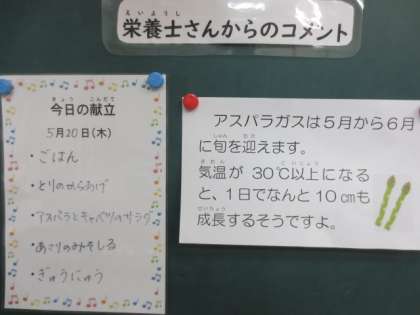 栄養士さんからのコメント
今日の献立
5月20日(木)
・ごはん
・とりのからあげ
・アスパラとキャベツのサラダ
・あさりのみそしる
・ぎゅうにゅう
アスパラガスは5月から6月
に旬を迎えます。
気温が 30℃以上になる
と、1日でなんと 10cmも
成長するそうですよ。